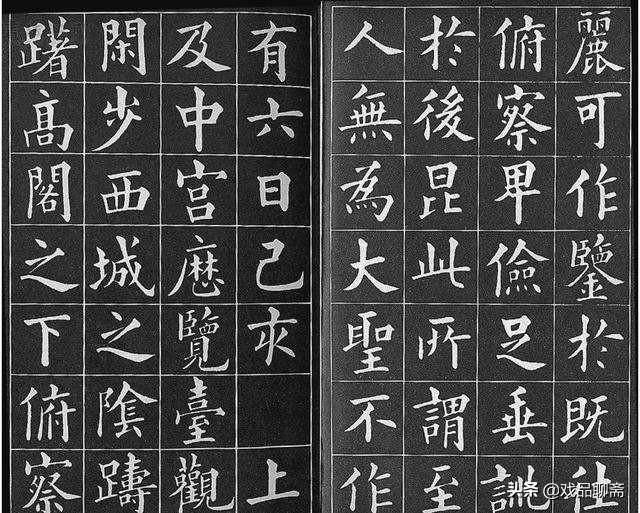 麗可作鑒於既往
俯察卑儉足垂訓
於後昆此所謂至
人無為大聖不作
有六日己亥 上
及中宮歷覽臺觀
閑步西城之陰躊
躇高閣之下俯察
头条 @戏品聊斋